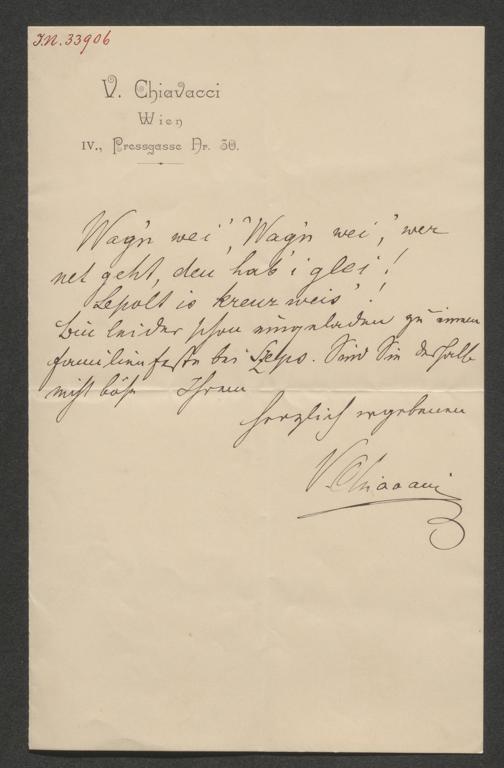 I.N. 33906
V. Chiavacci
Wien
IV., Pressgasse Nr. 30.
Wag'n wei', "Wag'n wei'," wer
net geht, den hab' i glei'!
Lepolt is kreuzweis'!
bin leider schon eingeladen zu einem
Familienfeste bei. Sind Sie deshalb
nicht böse Ihrem
herzlich ergebenen
V. Chiavacci